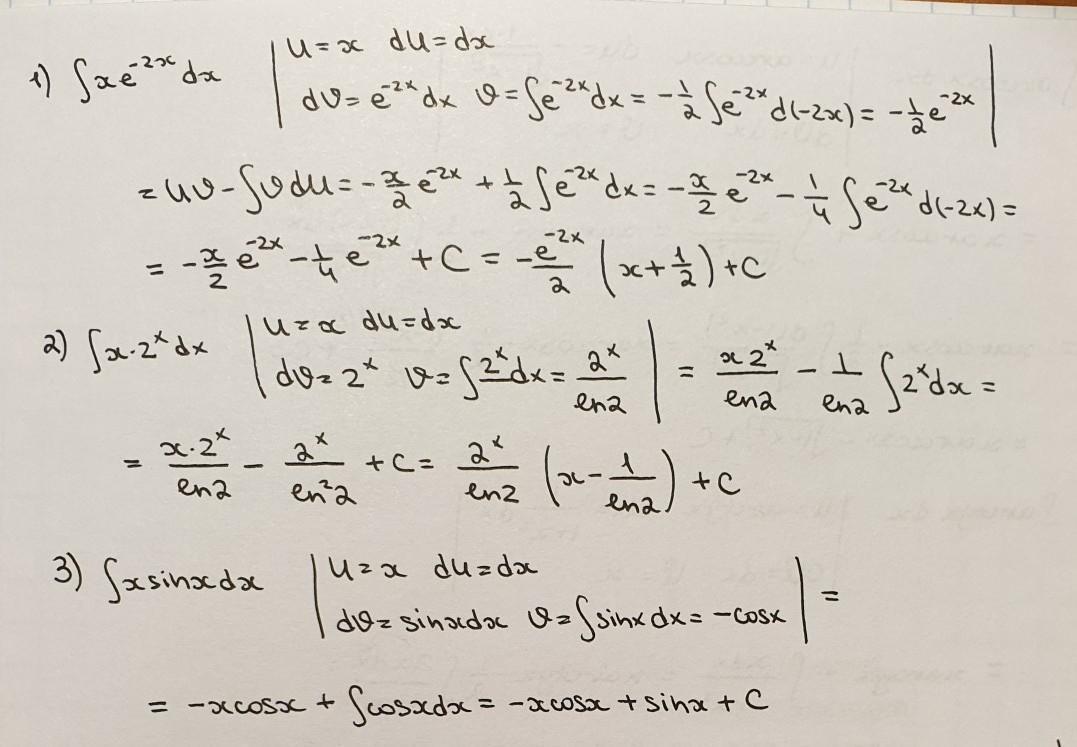 1) ∫xe^{-2x}dx | u = x du = dx
dv = e^{-2x}dx v = ∫e^{-2x}dx = -1/2 ∫e^{-2x}d(-2x) = -1/2 e^{-2x} |
= uv - ∫vdu = -x/2 e^{-2x} + 1/2 ∫e^{-2x}dx = -x/2 e^{-2x} - 1/4 ∫e^{-2x}d(-2x) =
= -x/2 e^{-2x} - 1/4 e^{-2x} + C = -e^{-2x}/2 (x + 1/2) + C
2) ∫x·2^x dx | u = x du = dx
dv = 2^x v = ∫2^x dx = 2^x/ln2 | = x2^x/ln2 - 1/ln2 ∫2^x dx =
= x·2^x/ln2 - 2^x/ln²2 + C = 2^x/ln2 (x - 1/ln2) + C
3) ∫xsinxdx | u = x du = dx
dv = sinxdx v = ∫sinxdx = -cosx | =
= -xcosx + ∫cosxdx = -xcosx + sinx + C